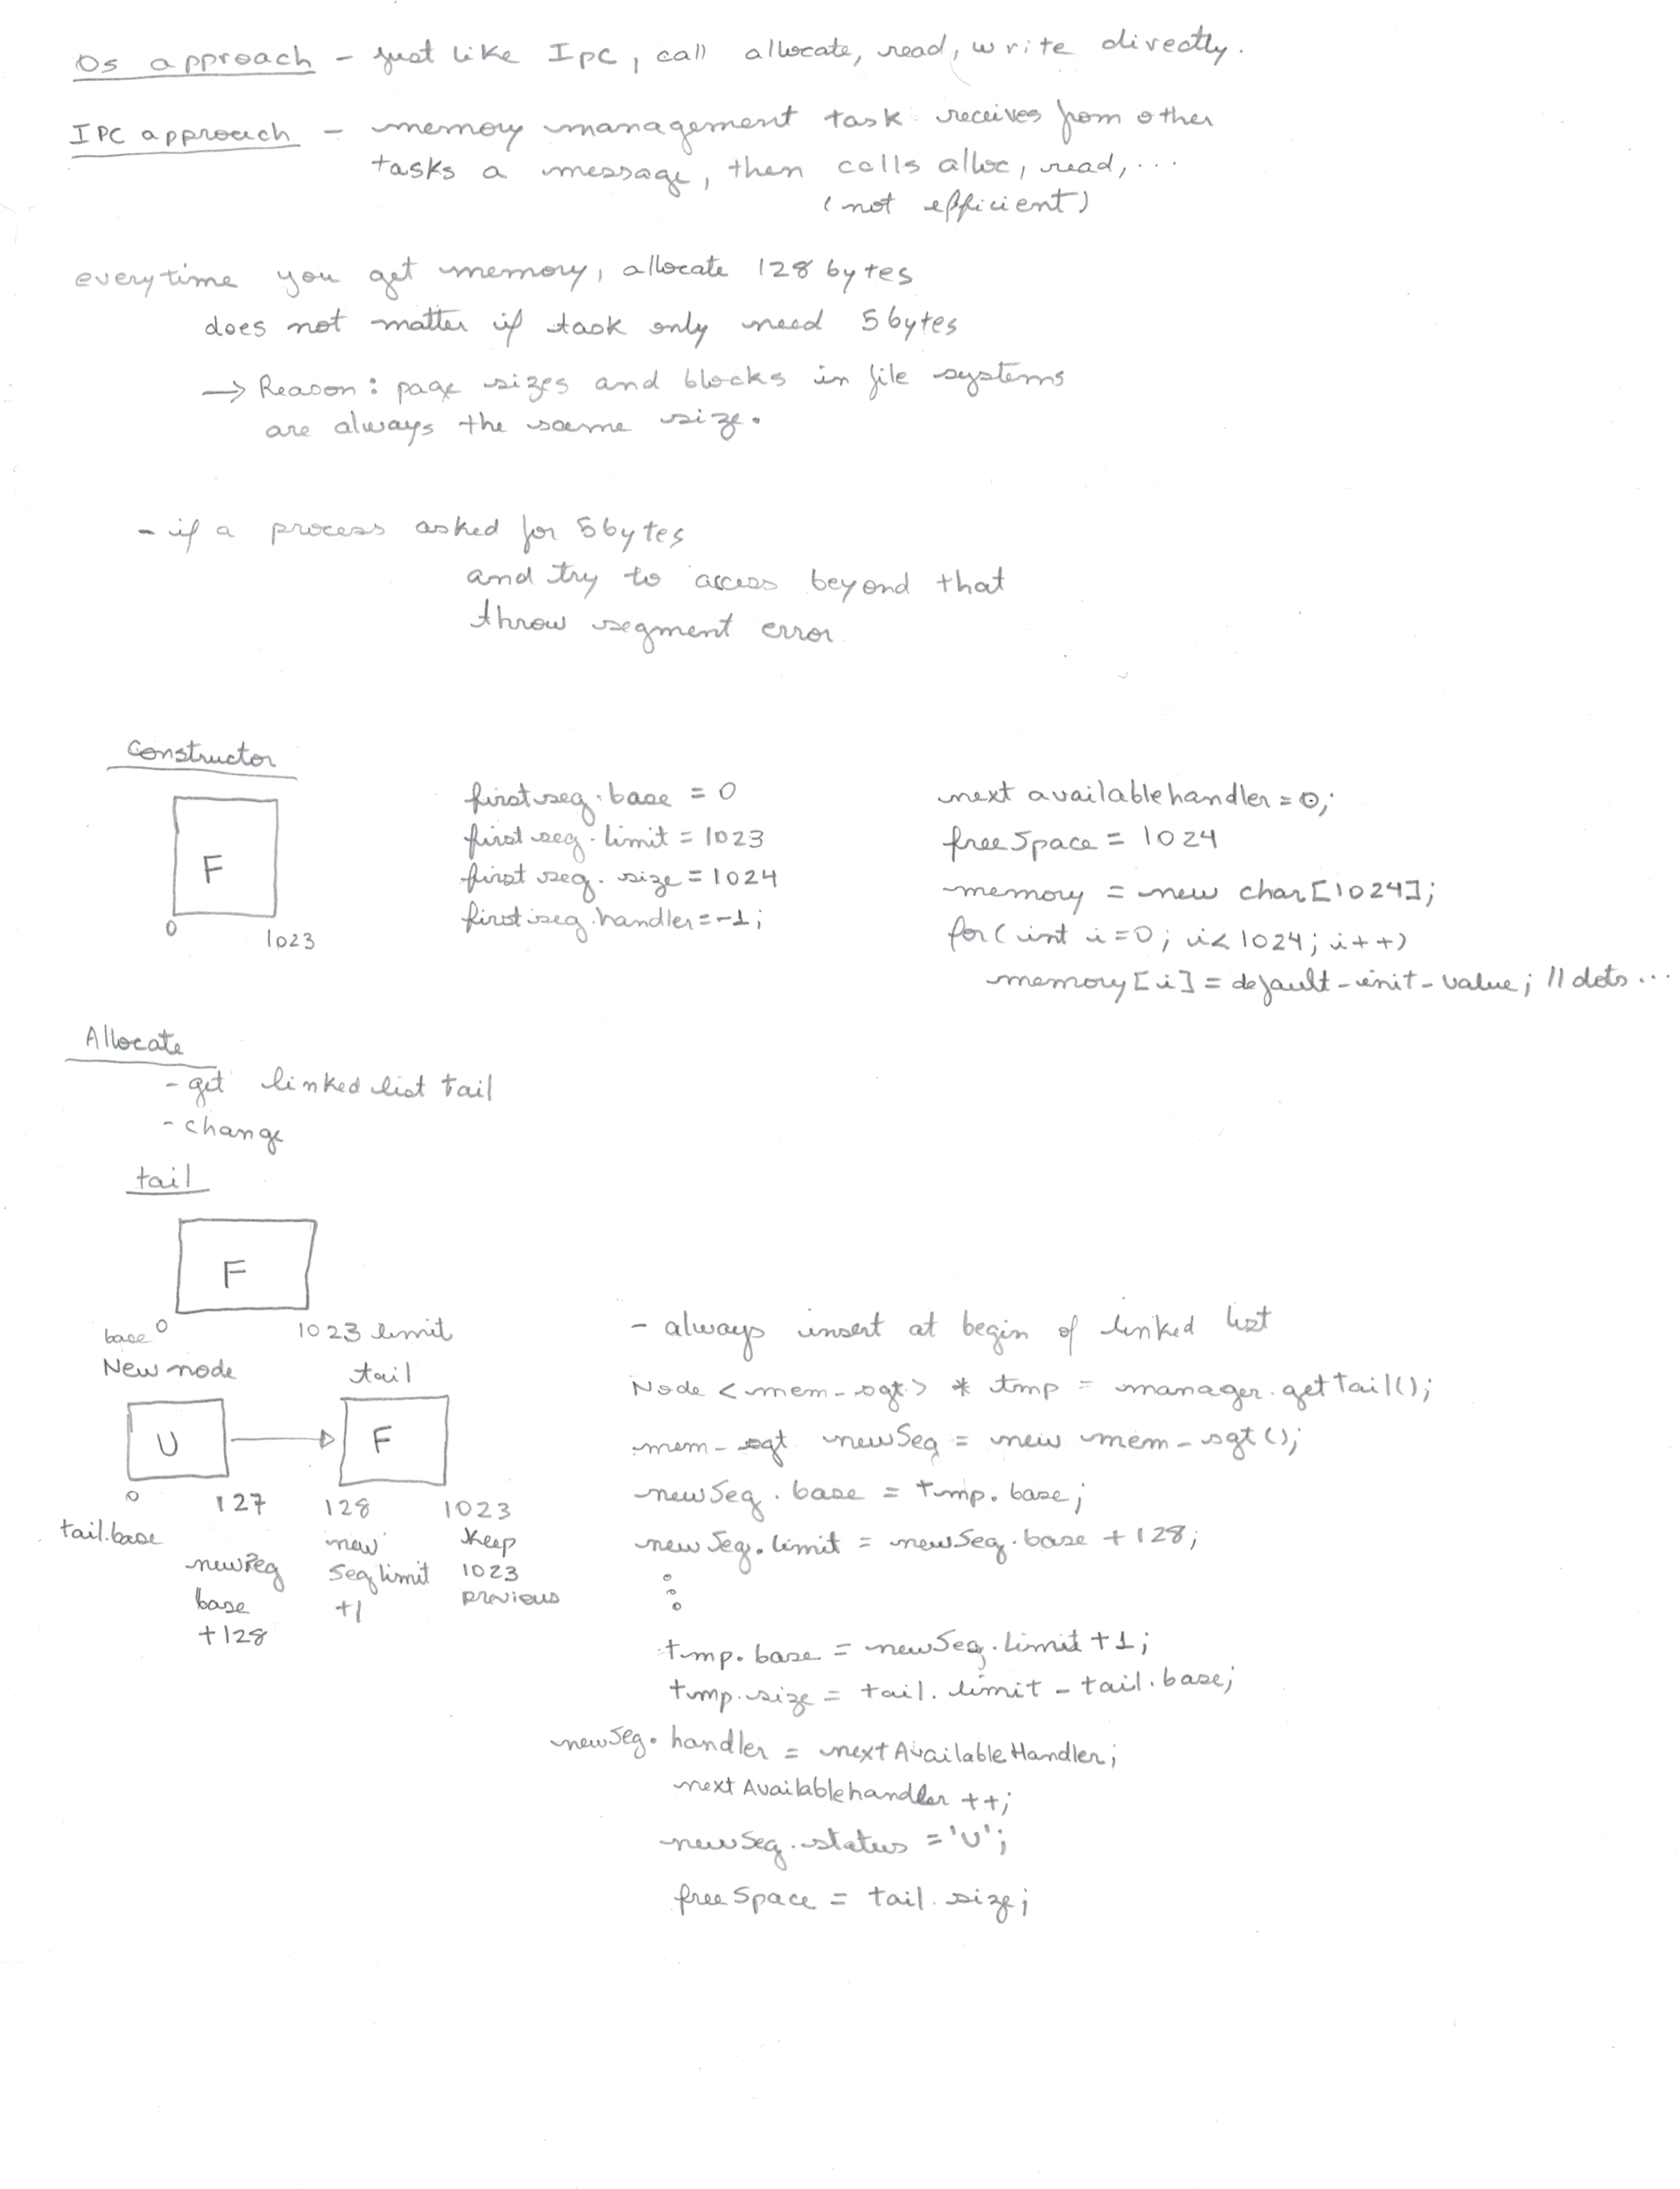 Os approach - just like Ipc, call allocate, read, write directly.
IPC approach - memory management task receives from other
tasks a message, then calls alloc, read, ...
(not efficient)
everytime you get memory, allocate 128 bytes
does not matter if task only need 5 bytes
→ Reason: page sizes and blocks in file systems
are always the same size.
- if a process asked for 5 bytes
and try to access beyond that
throw segment error
Constructor
F
0
1023
first seg.base = 0
first seg.limit = 1023
first seg.size = 1024
first seg.handler = -1;
next available handler = 0;
free Space = 1024
memory = new char[1024];
for(int i=0; i<1024; i++)
memory[i] = default-init-value; // dots ...
Allocate
- get linked list tail
- change
tail
F
base 0
1023 limit
New node
tail
U
F
0
127
128
1023
tail.base
newseg
base
+128
new
Seg limit
+1
keep
1023
previous
- always insert at begin of linked list
Node <mem-sgt> * tmp = manager.getTail();
mem-sgt newSeg = new mem-sgt();
newSeg.base = tmp.base;
newSeg.limit = newSeg.base + 128;
tmp.base = newSeg.Limit + 1;
tmp.size = tail.limit - tail.base;
newSeg.handler = nextAvailableHandler;
nextAvailablehandler ++;
newSeg.status = 'U';
free Space = tail.size;